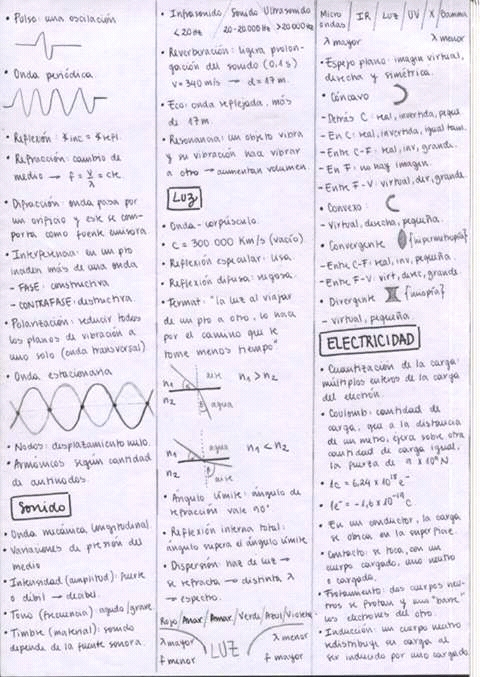 • Pulso: una oscilación
• Onda periódica
• Reflexión: ∡ inc = ∡ refl.
• Refracción: cambio de
medio → f = v/λ = cte.
• Difracción: onda pasa por
un orificio y este se com-
porta como fuente emisora
• Interferencia: en un pto
inciden más de una onda
- FASE: constructiva
- CONTRAFASE: destructiva.
• Polarización: reducir todos
los planos de vibración a
uno solo (onda transversal).
• Onda estacionaria
• Nodos: desplazamiento nulo.
• Armónicos según cantidad
de antinodos.
Sonido
• Onda mecánica longitudinal.
• Variaciones de presión del
medio
• Intensidad (amplitud): fuerte
o débil → decibel.
• Tono (frecuencia): agudo/grave.
• Timbre (material): sonido
depende de la fuente sonora.
• Infrasonido / Sonido / Ultrasonido
< 20 Hz 20-20.000 Hz > 20.000 Hz
• Reverberación: ligera prolon-
gación del sonido (0,1 s)
v = 340 m/s → d = 17 m.
• Eco: onda reflejada, más
de 17 m.
• Resonancia: un objeto vibra
y su vibración hace vibrar
a otro → aumentan volumen.
LUZ
• Onda-corpúsculo.
• c = 300 000 Km/s (vacío).
• Reflexión especular: lisa.
• Reflexión difusa: rugosa.
• Fermat: "la luz al viajar
de un pto a otro, lo hace
por el camino que le
tome menos tiempo"
n1 aire n1 > n2
n2 agua
n1 agua n1 < n2
n2 aire
• Angulo límite: ángulo de
refracción vale 90°
• Reflexión interna total:
ángulo supera el ángulo límite
• Dispersión: haz de luz →
se refracta → distinta λ
→ espectro.
Rojo/Anar./Amar./Verde/Azul/Violeta
λ mayor LUZ λ menor
f menor f mayor
Micro ondas / IR / LUZ / UV / X / Gamma
λ mayor λ menor
• Espejo plano: imagen virtual,
derecha y simétrica.
• Cóncavo
- Detrás C: real, invertida, peque.
- En C: real, invertida, igual tam.
- Entre C-F: real, inv, grande.
- En F: no hay imagen.
- Entre F-V: virtual, der, grande.
• Convexo:
- Virtual, derecha, pequeña.
• Convergente {hipermetropía}
- Entre C-F: real, inv, pequeña.
- Entre F-V: virt, derec, grande.
• Divergente {miopía}
- virtual, pequeña.
ELECTRICIDAD
• Cuantización de la carga:
múltiplos enteros de la carga
del electrón.
• Coulomb: cantidad de
carga, que a la distancia
de un metro, ejerce sobre otra
cantidad de carga igual,
la fuerza de 9 x 10⁹ N
• 1C = 6,24 x 10¹⁸ e⁻
• 1e⁻ = -1,6 x 10⁻¹⁹ C
• En un conductor, la carga
se ubica en la superficie.
• Contacto: se toca, con un
cuerpo cargado, uno neutro
o cargado.
• Frotamiento: dos cuerpos neu-
tros se frotan y uno "barre"
los electrones del otro.
• Inducción: un cuerpo neutro
redistribuye su carga al
ser inducido por uno cargado.